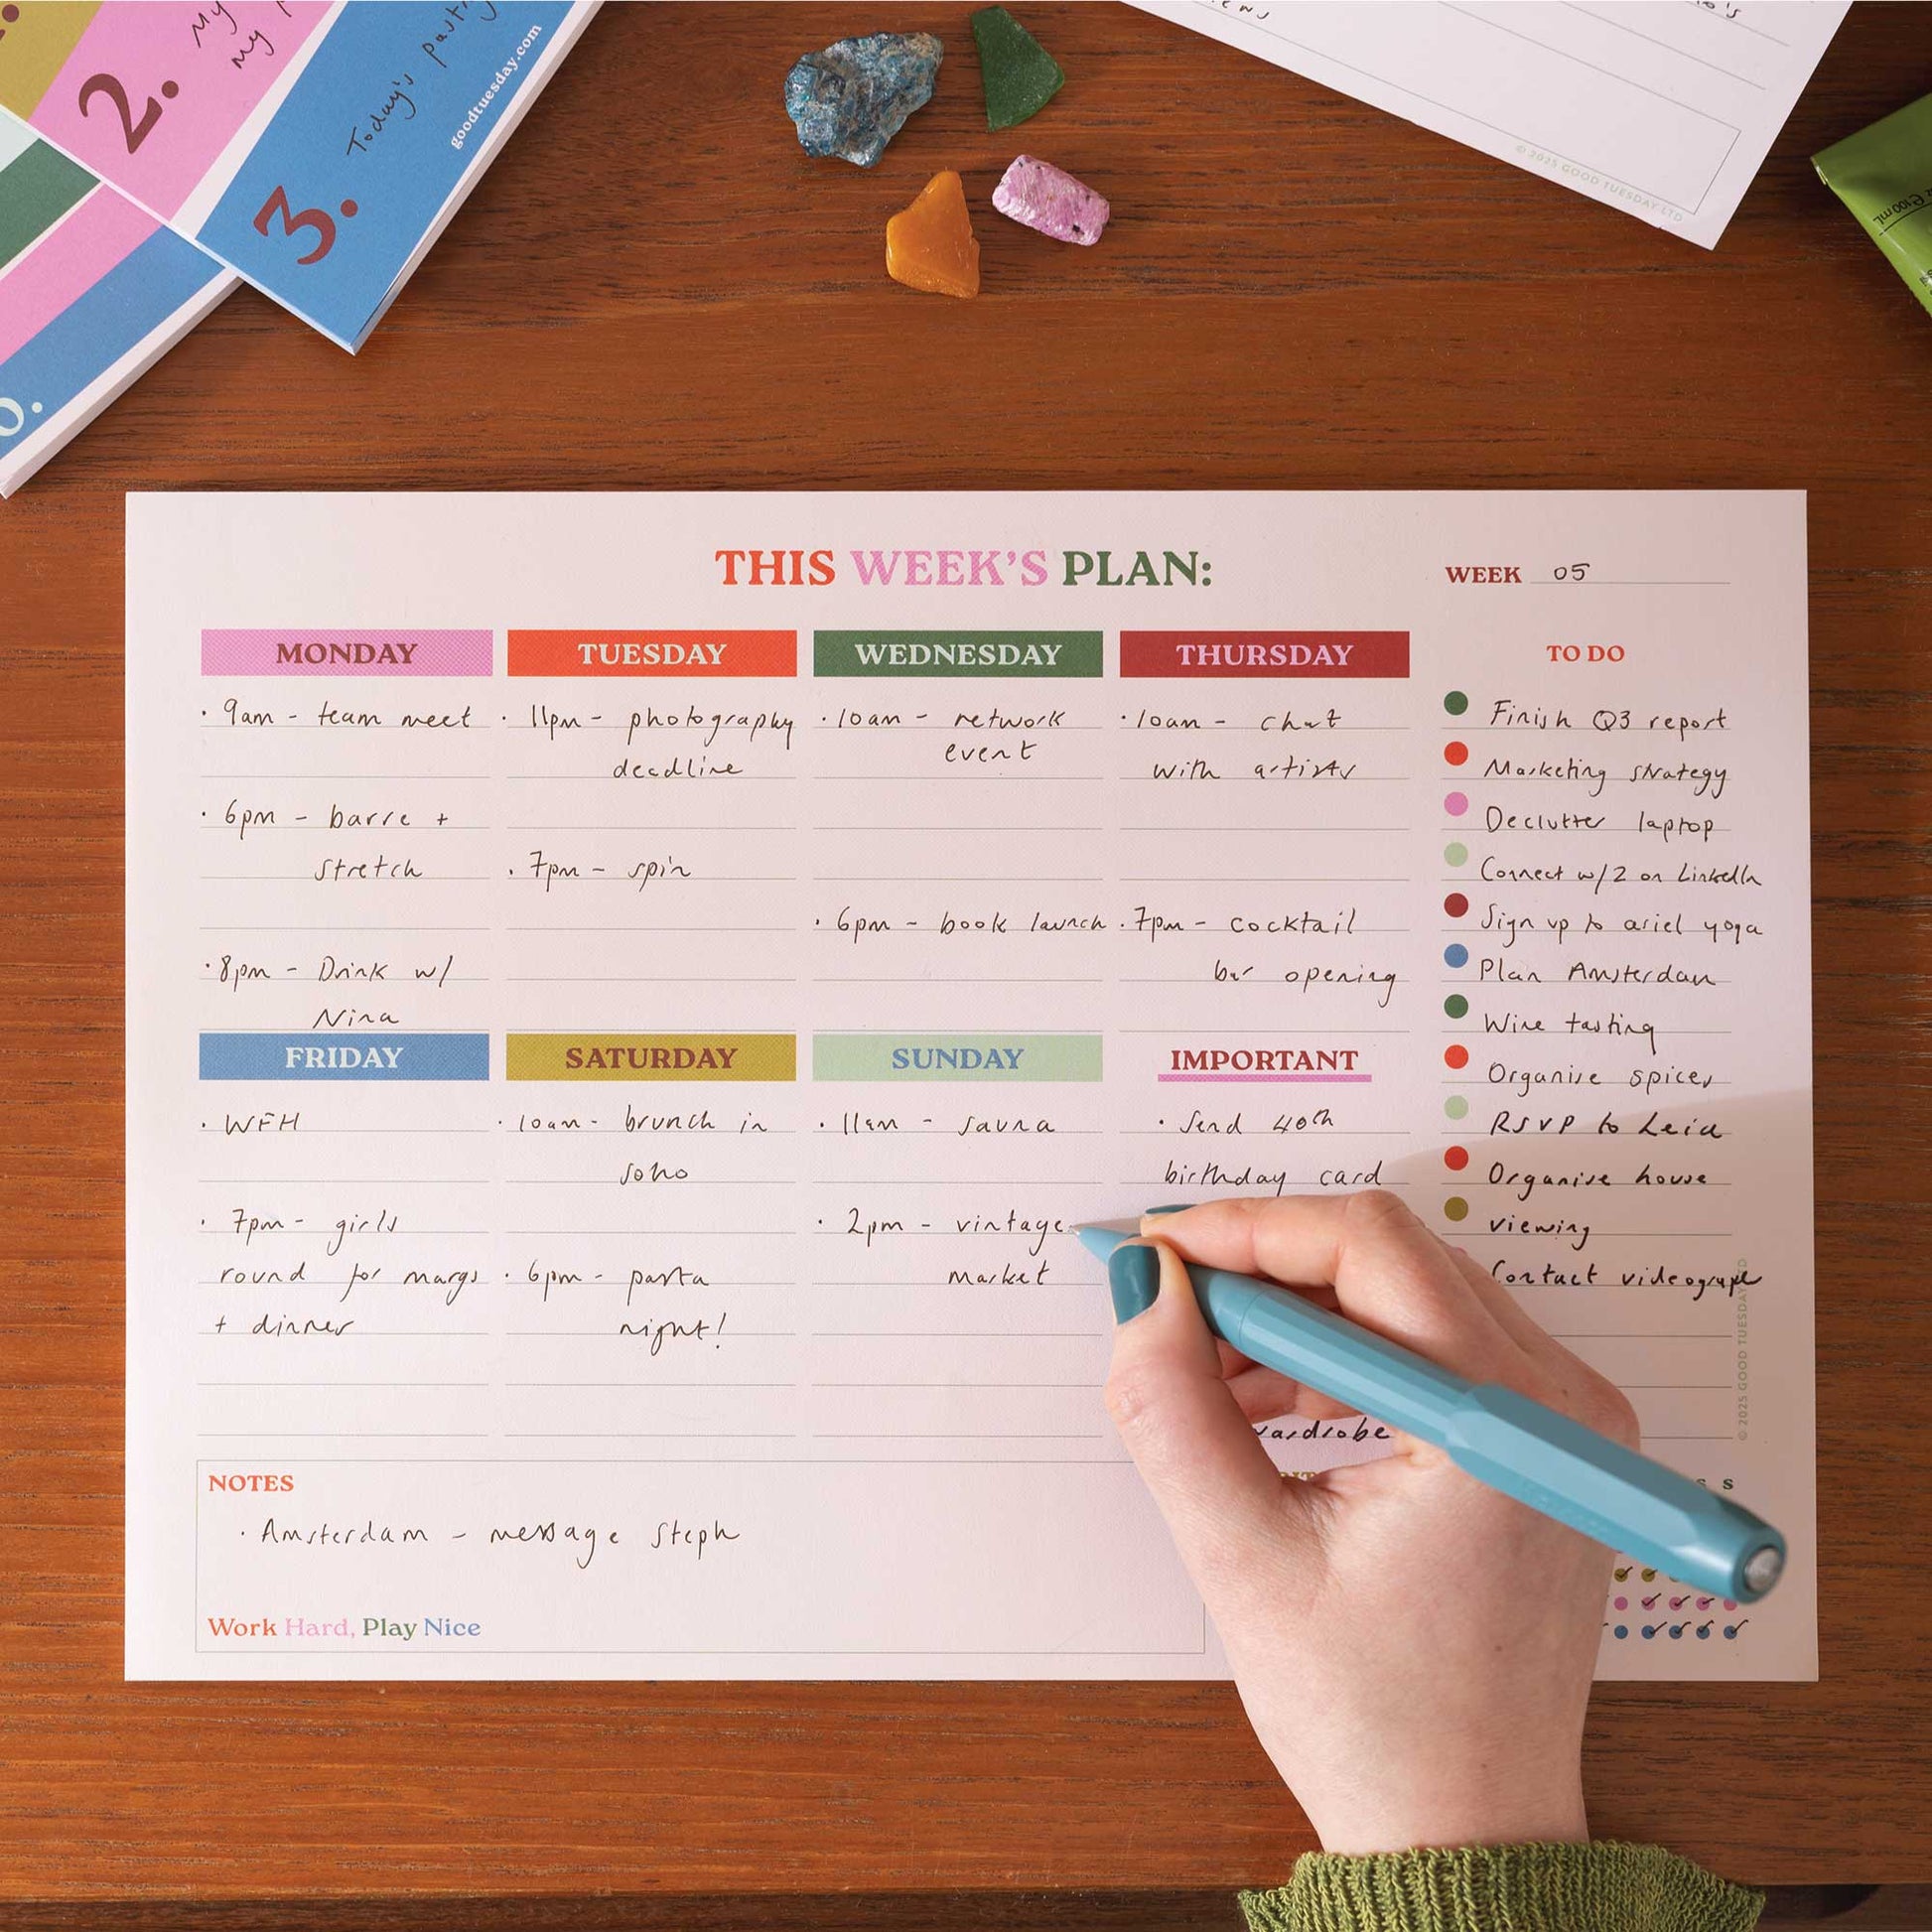 2.
My
my
3.
Today's
goodtuesday.com
© 2025 GOOD TUESDAY LTD
THIS WEEK'S PLAN:
WEEK 05
MONDAY
· 9am - team meet
· 6pm - barre +
stretch
· 8pm - Drink w/
Nina
TUESDAY
· 11pm - photography
deadline
· 7pm - spin
WEDNESDAY
· 10am - network
event
· 6pm - book launch
THURSDAY
· 10am - chat
with artists
· 7pm - cocktail
bar opening
TO DO
Finish Q3 report
Marketing strategy
Declutter laptop
Connect w/2 on LinkedIn
Sign up to ariel yoga
Plan Amsterdam
Wine tasting
Organise spices
RSVP to Leia
Organise house
viewing
Contact videograper
FRIDAY
· WFH
· 7pm - girls
round for margs
+ dinner
SATURDAY
· 10am - brunch in
soho
· 6pm - pasta
night!
SUNDAY
· 11am - sauna
· 2pm - vintage
market
IMPORTANT
· Send 40th
birthday card
wardrobe
© 2025 GOOD TUESDAY
S S
NOTES
· Amsterdam - message Steph
Work Hard, Play Nice